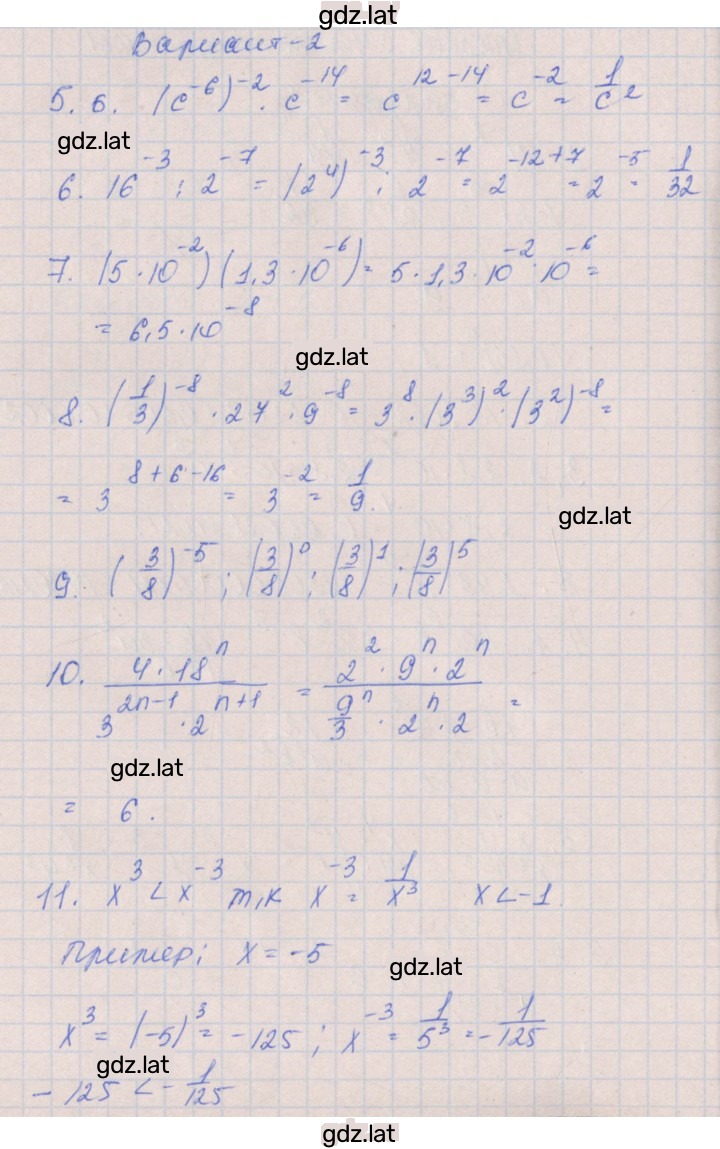 gdz.lat
Вариант-2
5. 6. (c⁻⁶)⁻² · c⁻¹⁴ = c¹²⁻¹⁴ = c⁻² = 1/c²
gdz.lat
6. 16⁻³ : 2⁻⁷ = (2⁴)⁻³ : 2⁻⁷ = 2⁻¹²⁺⁷ = 2⁻⁵ = 1/32
7. (5 · 10⁻²)(1,3 · 10⁻⁶) = 5 · 1,3 · 10⁻² · 10⁻⁶ =
= 6,5 · 10⁻⁸
gdz.lat
8. (1/3)⁻⁸ · 27² · 9⁻⁸ = 3⁸ · (3³)² · (3²)⁻⁸ =
= 3⁸⁺⁶⁻¹⁶ = 3⁻² = 1/9.
gdz.lat
9. (3/8)⁻⁵ ; (3/8)⁰ ; (3/8)¹ ; (3/8)⁵
10. (4 · 18ⁿ)/(3²ⁿ⁻¹ · 2ⁿ⁺¹) = (2² · 9ⁿ · 2ⁿ)/(9ⁿ/3 · 2ⁿ · 2) =
gdz.lat
= 6.
11. x³ < x⁻³ т,к x⁻³ = 1/x³ x < -1.
Пример: x = -5
gdz.lat
x³ = (-5)³ = -125 ; x⁻³ = 1/5³ = -1/125
gdz.lat
-125 < -1/125
gdz.lat